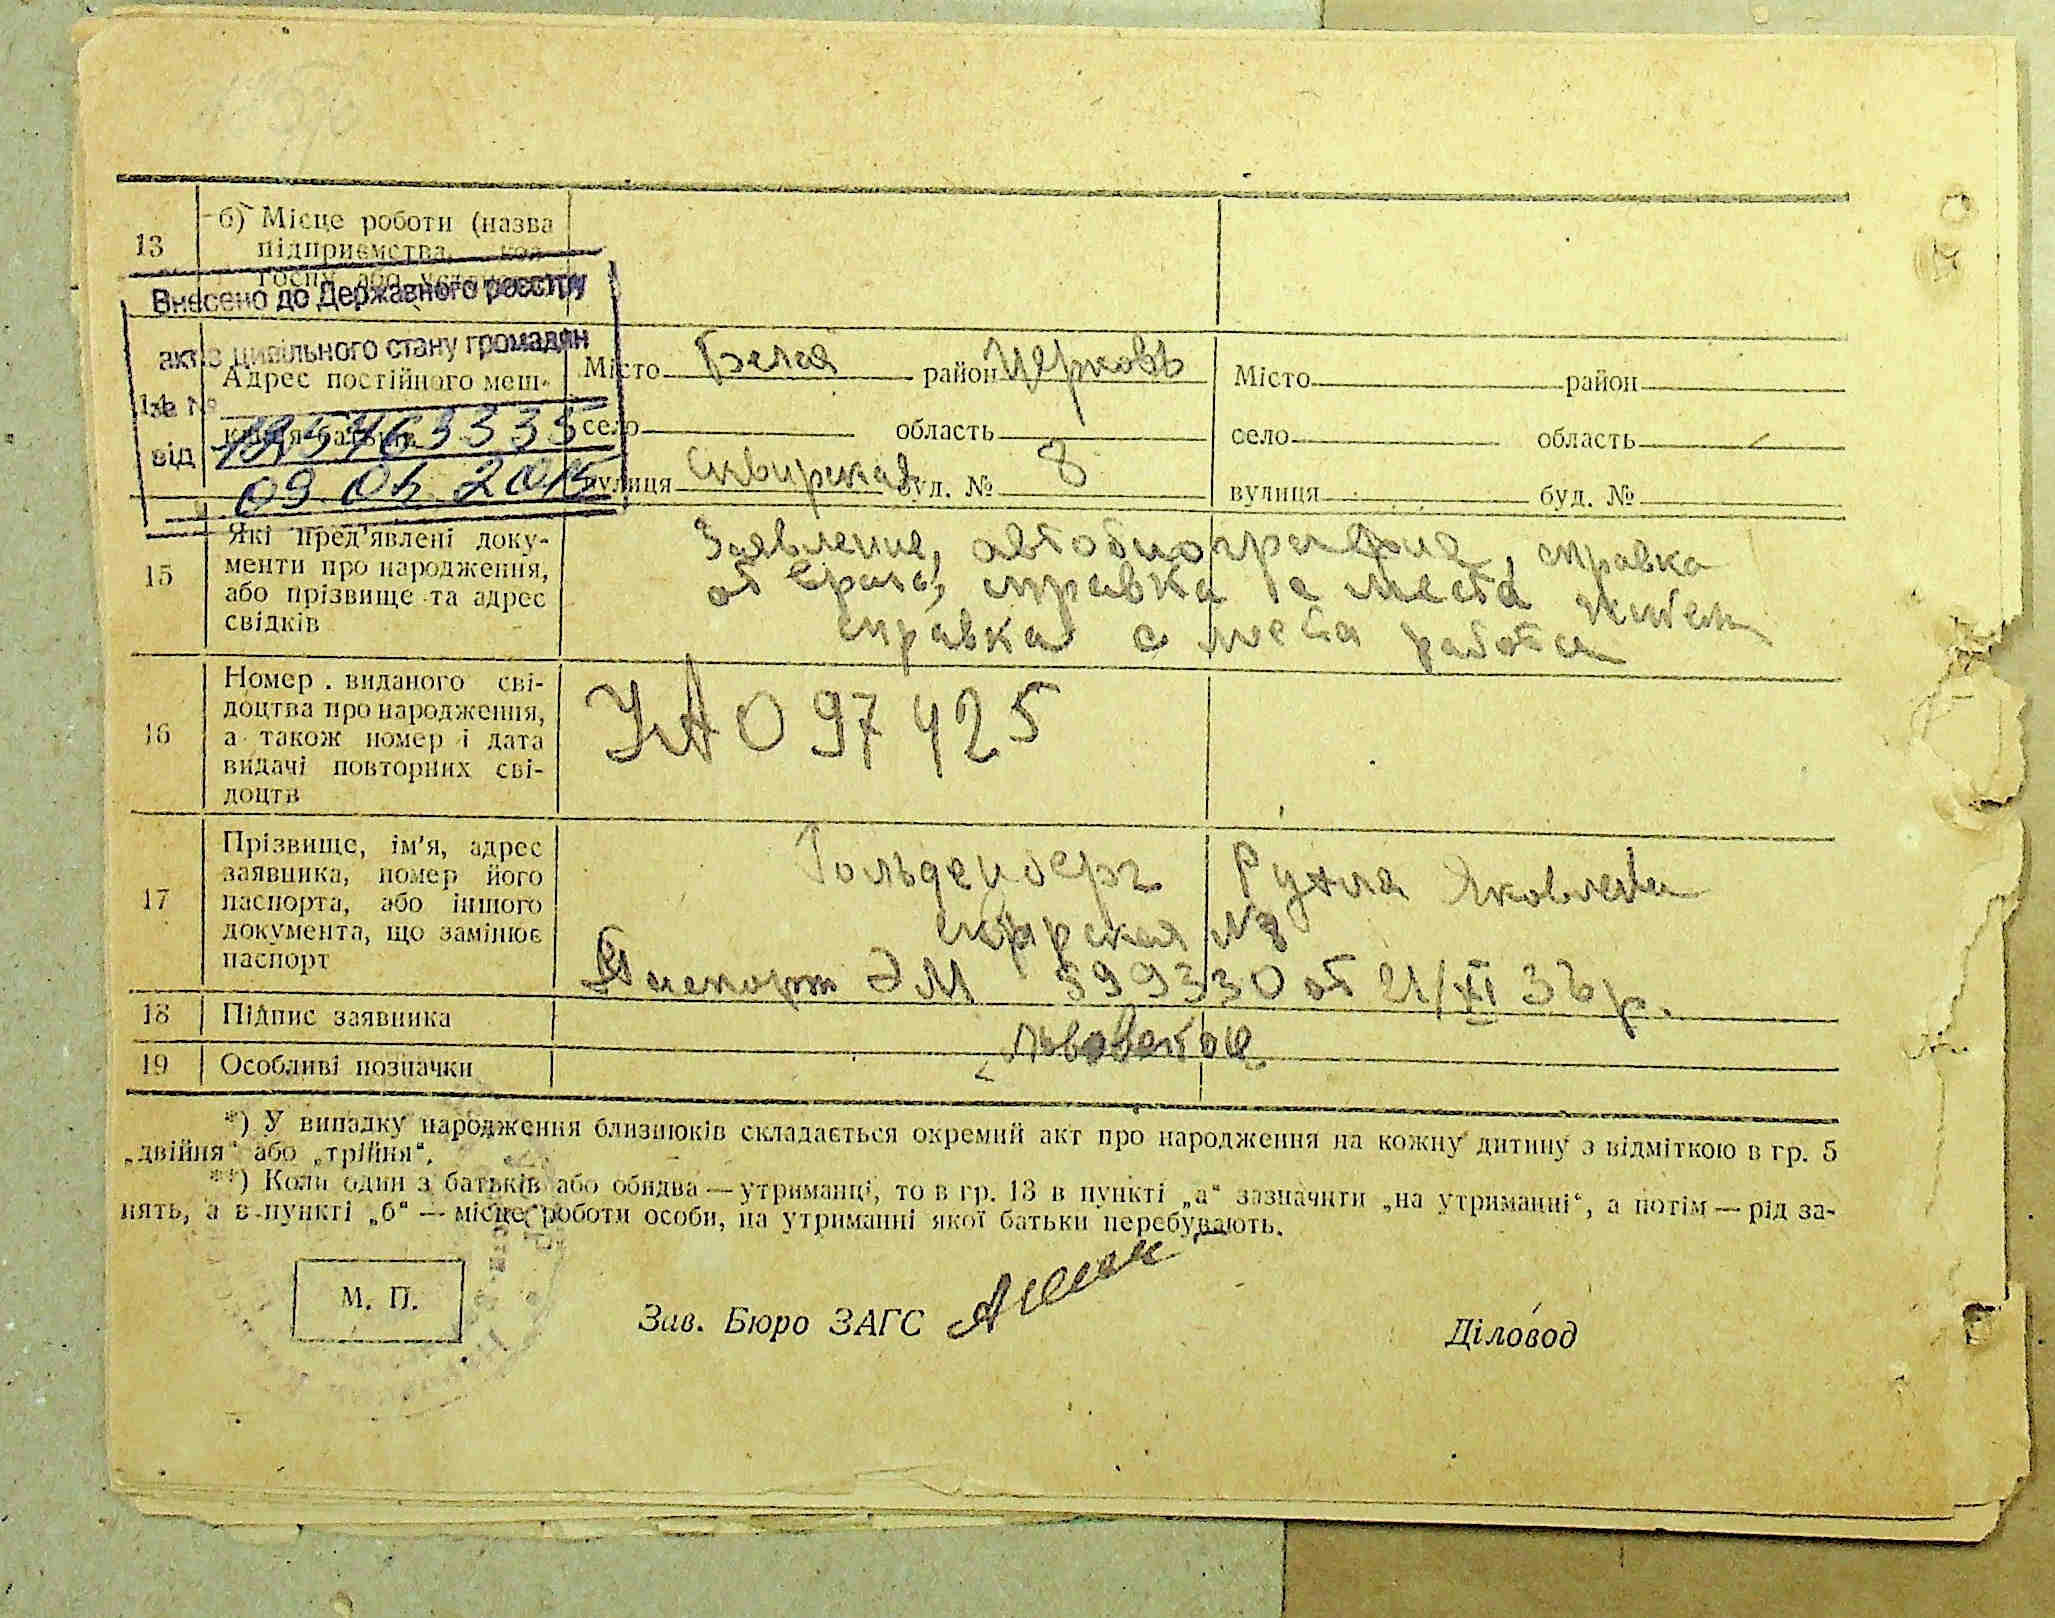 13
б) Місце роботи (назва
підприємства, кол-
госпу або установи)
Внесено до Державного реєстру
актів цивільного стану громадян
за №
від
09 06 2015
14
Адрес постійного меш-
канця батьків
Місто Белая район Церковь
село область
вулиця буд. № 8
Місто район
село область
вулиця буд. №
15
Які пред'явлені доку-
менти про народження,
або прізвище та адрес
свідків
Заявление, автобиография, справка
от врача, справка с места
справка с места работы
16
Номер виданого сві-
доцтва про народження,
а також номер і дата
видачі повторних сві-
доцтв
097425
17
Прізвище, ім'я, адрес
заявника, номер його
паспорта, або іншого
документа, що замінює
паспорт
Гольденберг Рухля Яковлевна
№ 8
Паспорт ЭМ 599330 от 21/XI 36 р.
18
Підпис заявника
19
Особливі позначки
*) У випадку народження близнюків складається окремий акт про народження на кожну дитину з відміткою в гр. 5
„двійня“ або „трійня“.
**) Коли один з батьків або обидва — утриманці, то в гр. 13 в пункті „а“ зазначити „на утриманні“, а потім — рід за-
нять, а в пункті „б“ — місце роботи особи, на утриманні якої батьки перебувають.
М. П.
Зав. Бюро ЗАГС
Діловод